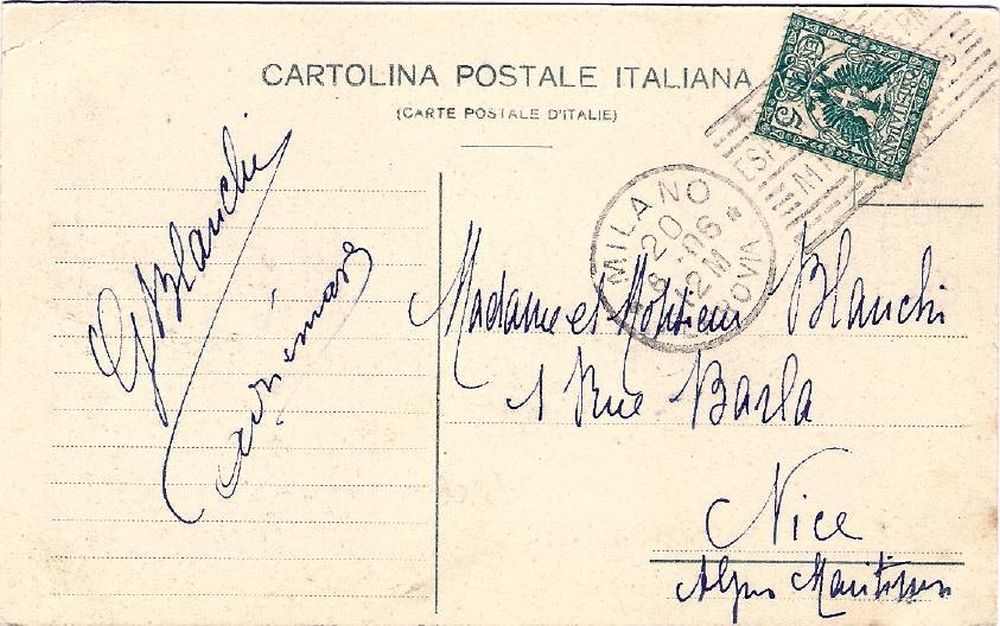 CARTOLINA POSTALE ITALIANA
(CARTE POSTALE D'ITALIE)
POSTE ITALIANE
MILANO
20
06
12 M
FERROVIA
G Blanchi
Madame et Monsieur Blanchi
1 Rue Barla
Nice
Alpes Maritimes